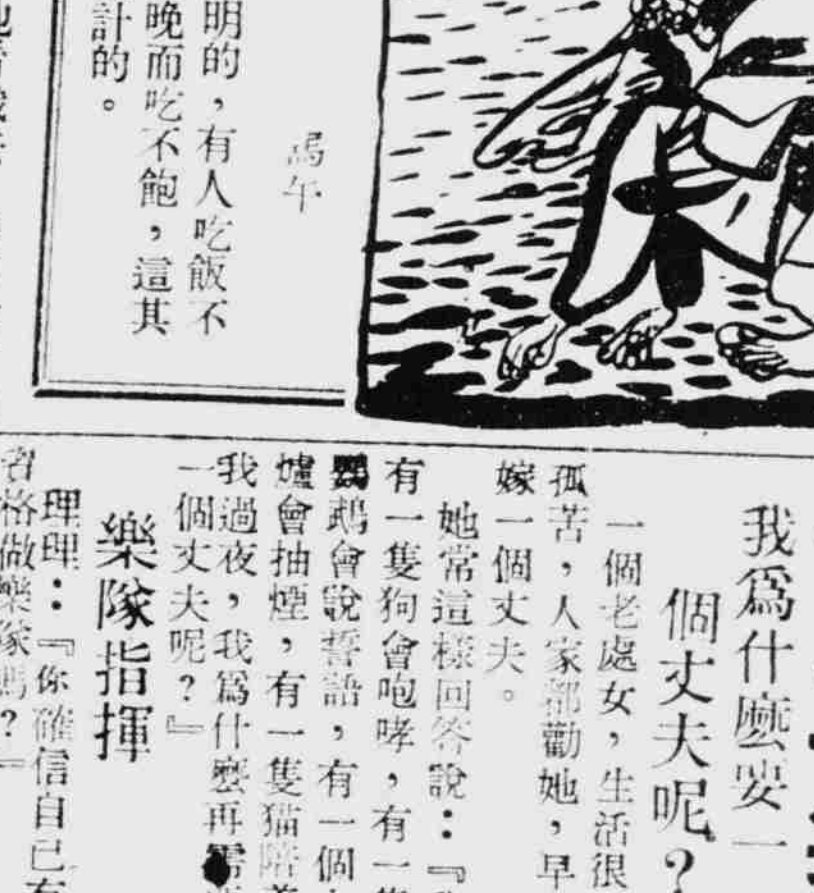 明的，有人吃飯不
晚而吃不飽，這其
計的。
馮午
我爲什麽要一
個丈夫呢？
一個老處女，生活很
孤苦，人家都勸她，早
嫁一個丈夫。
她常這樣回答說：『
有一隻狗會咆哮，有一隻
鸚鵡會說誓語，有一個
爐會抽煙，有一隻猫陪
我過夜，我爲什麽再需
一個丈夫呢？』
樂隊指揮
理理：『你確信自己有
格做樂隊嗎？』